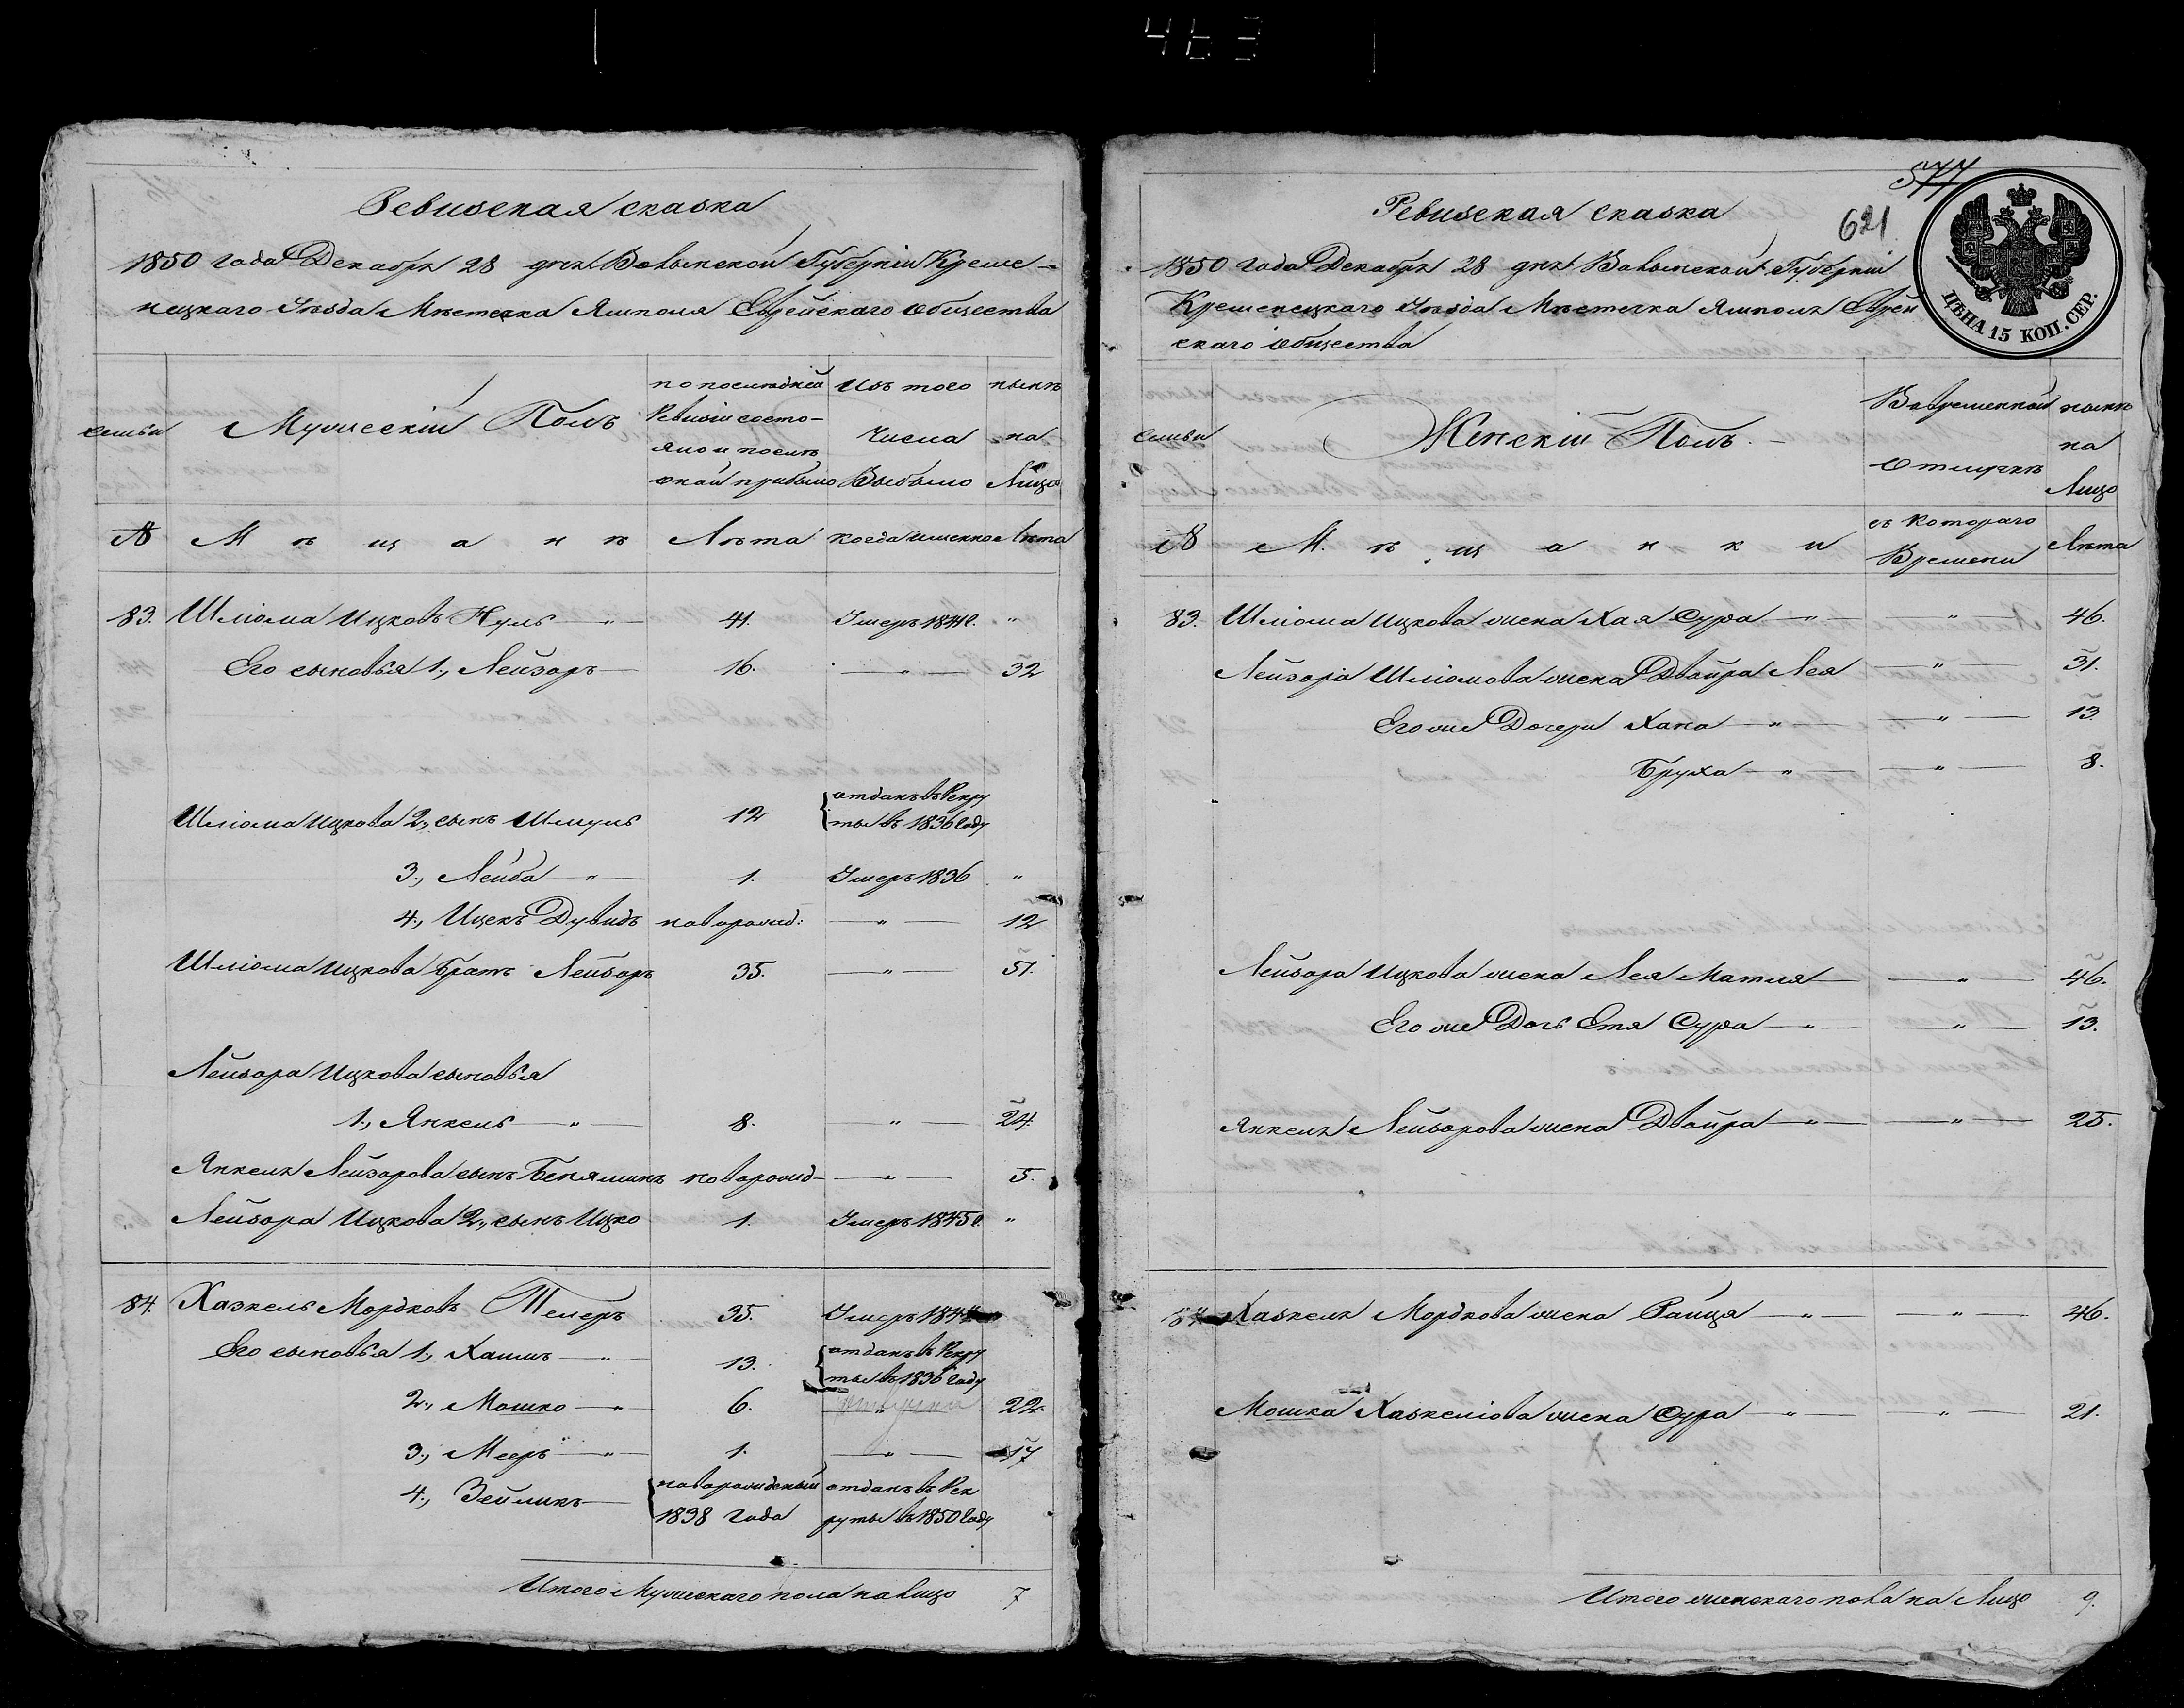 Ревизская сказка
1850 года Декабря 28 дня Волынской Губерніи Креме-
нецкаго Уѣзда Мѣстечка Ямполя Еврейскаго общества
семьи
Мужескій Полъ
по послѣдней
Ревизіи состо-
яло и послѣ
оной прибыло
Изъ того
Числа
Выбыло
нынѣ
на
Лицо
№
М ѣ щ а н ѣ
Лѣта
когда именно
Лѣта
83. Шліома Ицковъ Нуль — " — 41. Умеръ 1841г. "
Его сыновья 1., Лейзоръ — 16. — " — 32
Шліома Ицкова 2., сынъ Шмуль 12 отданъ въ Рекру
ты въ 1836 году
3., Лейба " — 1. Умеръ 1836 "
4., Ицекъ Дувидъ новорожд: — " — 12
Шліома Ицкова братъ Лейзоръ 35. — " — 51.
Лейзора Ицкова сыновья
1., Янкель — " — 8. " — 24.
Янкеля Лейзорова сынъ Беняминъ новорожд — " — 5.
Лейзора Ицкова 2., сынъ Ицко 1. Умеръ 1845г. "
84. Хазкель Мордковъ Темеръ 35. Умеръ 1844
Его сыновья 1., Хаимъ — " — 13. отданъ въ Рекру
ты въ 1836 году
2., Мошко — " 6. — " — 22.
3., Мееръ — " — 1. — " — 17
4., Зейликъ — новорожденый отданъ въ Рек
1838 года руты въ 1850 году
Итого Мужескаго пола на лицо 7
577
621
Ревизская сказка
1850 года Декабря 28 дня Волынской Губерніи
Кременецкаго Уѣзда Мѣстечка Ямполя Еврей
скаго общества
ЦѢНА 15 КОП. СЕР.
семьи
Женскій Полъ. —
Во временной
отлучкѣ
нынѣ
на
Лицо
№
М ѣ щ а н к и
съ котораго
Времени
Лѣта
83. Шліома Ицкова жена Хая Сура — " — — " — 46.
Лейзора Шліомова жена Двойра Лея — " — 31.
Его же Дочери Хана — " — — " — 13.
Бруха — " — — " — 8.
Лейзора Ицкова жена Лея Матля — — " — 46.
Его же Дочь Етя Сура — " — — " — 13.
Янкеля Лейзорова жена Двойра — " — — " — 25.
84 Хазкеля Мордкова жена Райця — " — — " — 46.
Мошка Хазкеліова жена Сура — " — — " — 21.
Итого женскаго пола на Лицо 9.